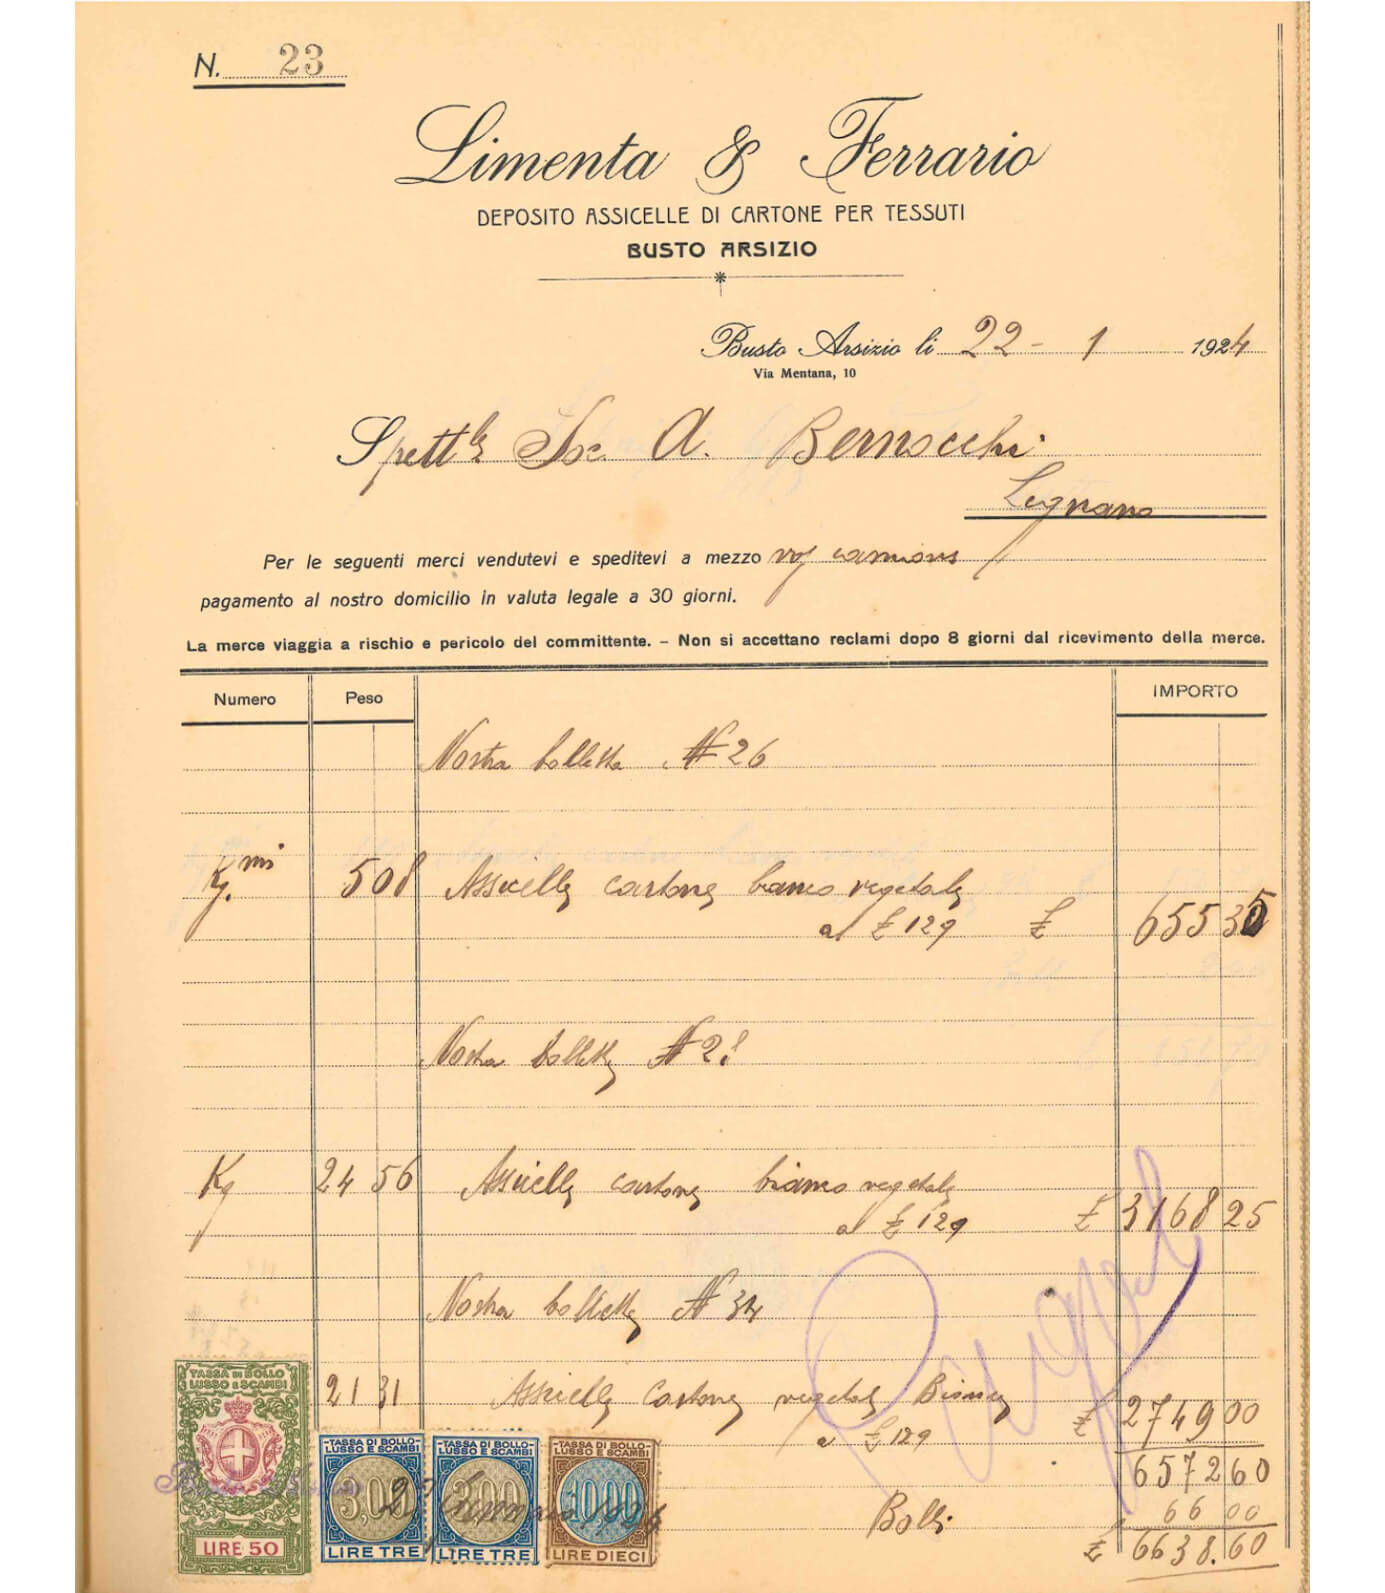 N. 23
Limenta & Ferrario
DEPOSITO ASSICELLE DI CARTONE PER TESSUTI
BUSTO ARSIZIO
Busto Arsizio li 22 - 1 1924
Via Mentana, 10
Spett.le Soc. A. Bernocchi
Legnano
Per le seguenti merci vendutevi e speditevi a mezzo camions
pagamento al nostro domicilio in valuta legale a 30 giorni.
La merce viaggia a rischio e pericolo del committente. – Non si accettano reclami dopo 8 giorni dal ricevimento della merce.
Numero Peso IMPORTO
Nostra bolletta N 26
Kg.mi 508 Assicelle cartone bianco vegetale
a £ 129 £ 655 35
Nostra bolletta N 28
Kg 24 56 Assicelle cartone bianco vegetale
a £ 129 £ 3168 25
Nostra bolletta N 34
21 31 Assicelle cartone vegetale Bianco
a £ 129 £ 2749 00
6572 60
Bolli 66 00
£ 6638.60
TASSA DI BOLLO
LUSSO E SCAMBI
LIRE 50
TASSA DI BOLLO
LUSSO E SCAMBI
3,00
LIRE TRE
TASSA DI BOLLO
LUSSO E SCAMBI
3,00
LIRE TRE
TASSA DI BOLLO
LUSSO E SCAMBI
10,00
LIRE DIECI